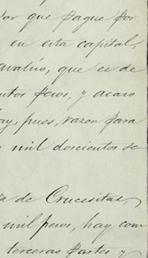 or que pague por
en esta capital,
avalúo, que es de
ntos pesos, y acaro
ay, pues, razon para
mil doscientos de
a de Crucesitas,
mil pesos, hay com
terceras partes y